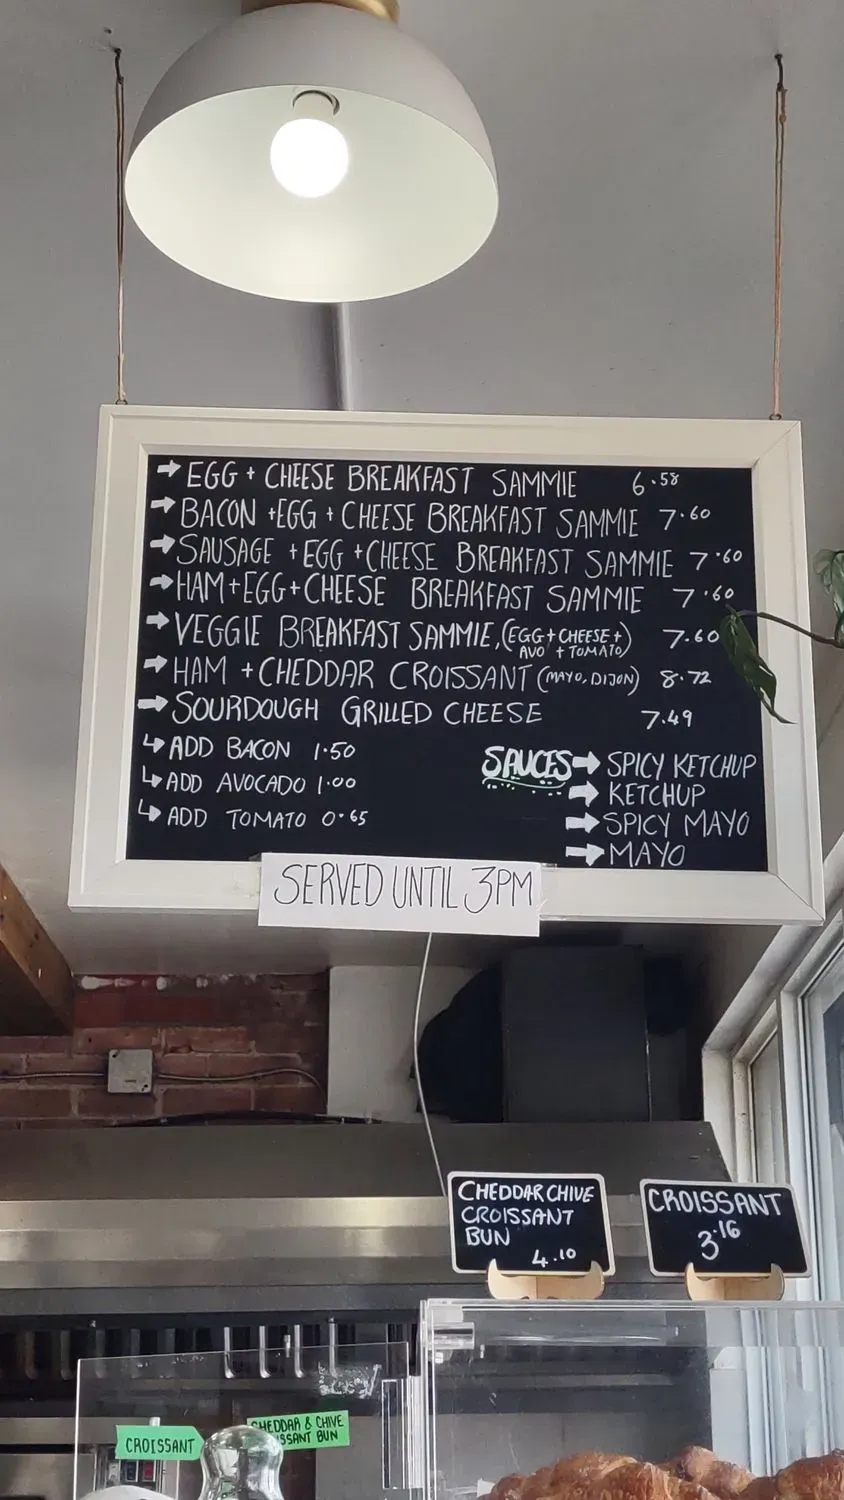 ➡ EGG + CHEESE BREAKFAST SAMMIE 6.58
➡ BACON + EGG + CHEESE BREAKFAST SAMMIE 7.60
➡ SAUSAGE + EGG + CHEESE BREAKFAST SAMMIE 7.60
➡ HAM + EGG + CHEESE BREAKFAST SAMMIE 7.60
➡ VEGGIE BREAKFAST SAMMIE, (EGG + CHEESE + AVO + TOMATO) 7.60
➡ HAM + CHEDDAR CROISSANT (MAYO, DIJON) 8.72
➡ SOURDOUGH GRILLED CHEESE 7.49
↳ ADD BACON 1.50
↳ ADD AVOCADO 1.00
↳ ADD TOMATO 0.65
SAUCES ➡ SPICY KETCHUP
➡ KETCHUP
➡ SPICY MAYO
➡ MAYO
SERVED UNTIL 3PM
CHEDDAR CHIVE
CROISSANT
BUN
4.10
CROISSANT
3.16
CROISSANT
CHEDDAR & CHIVE
BUN